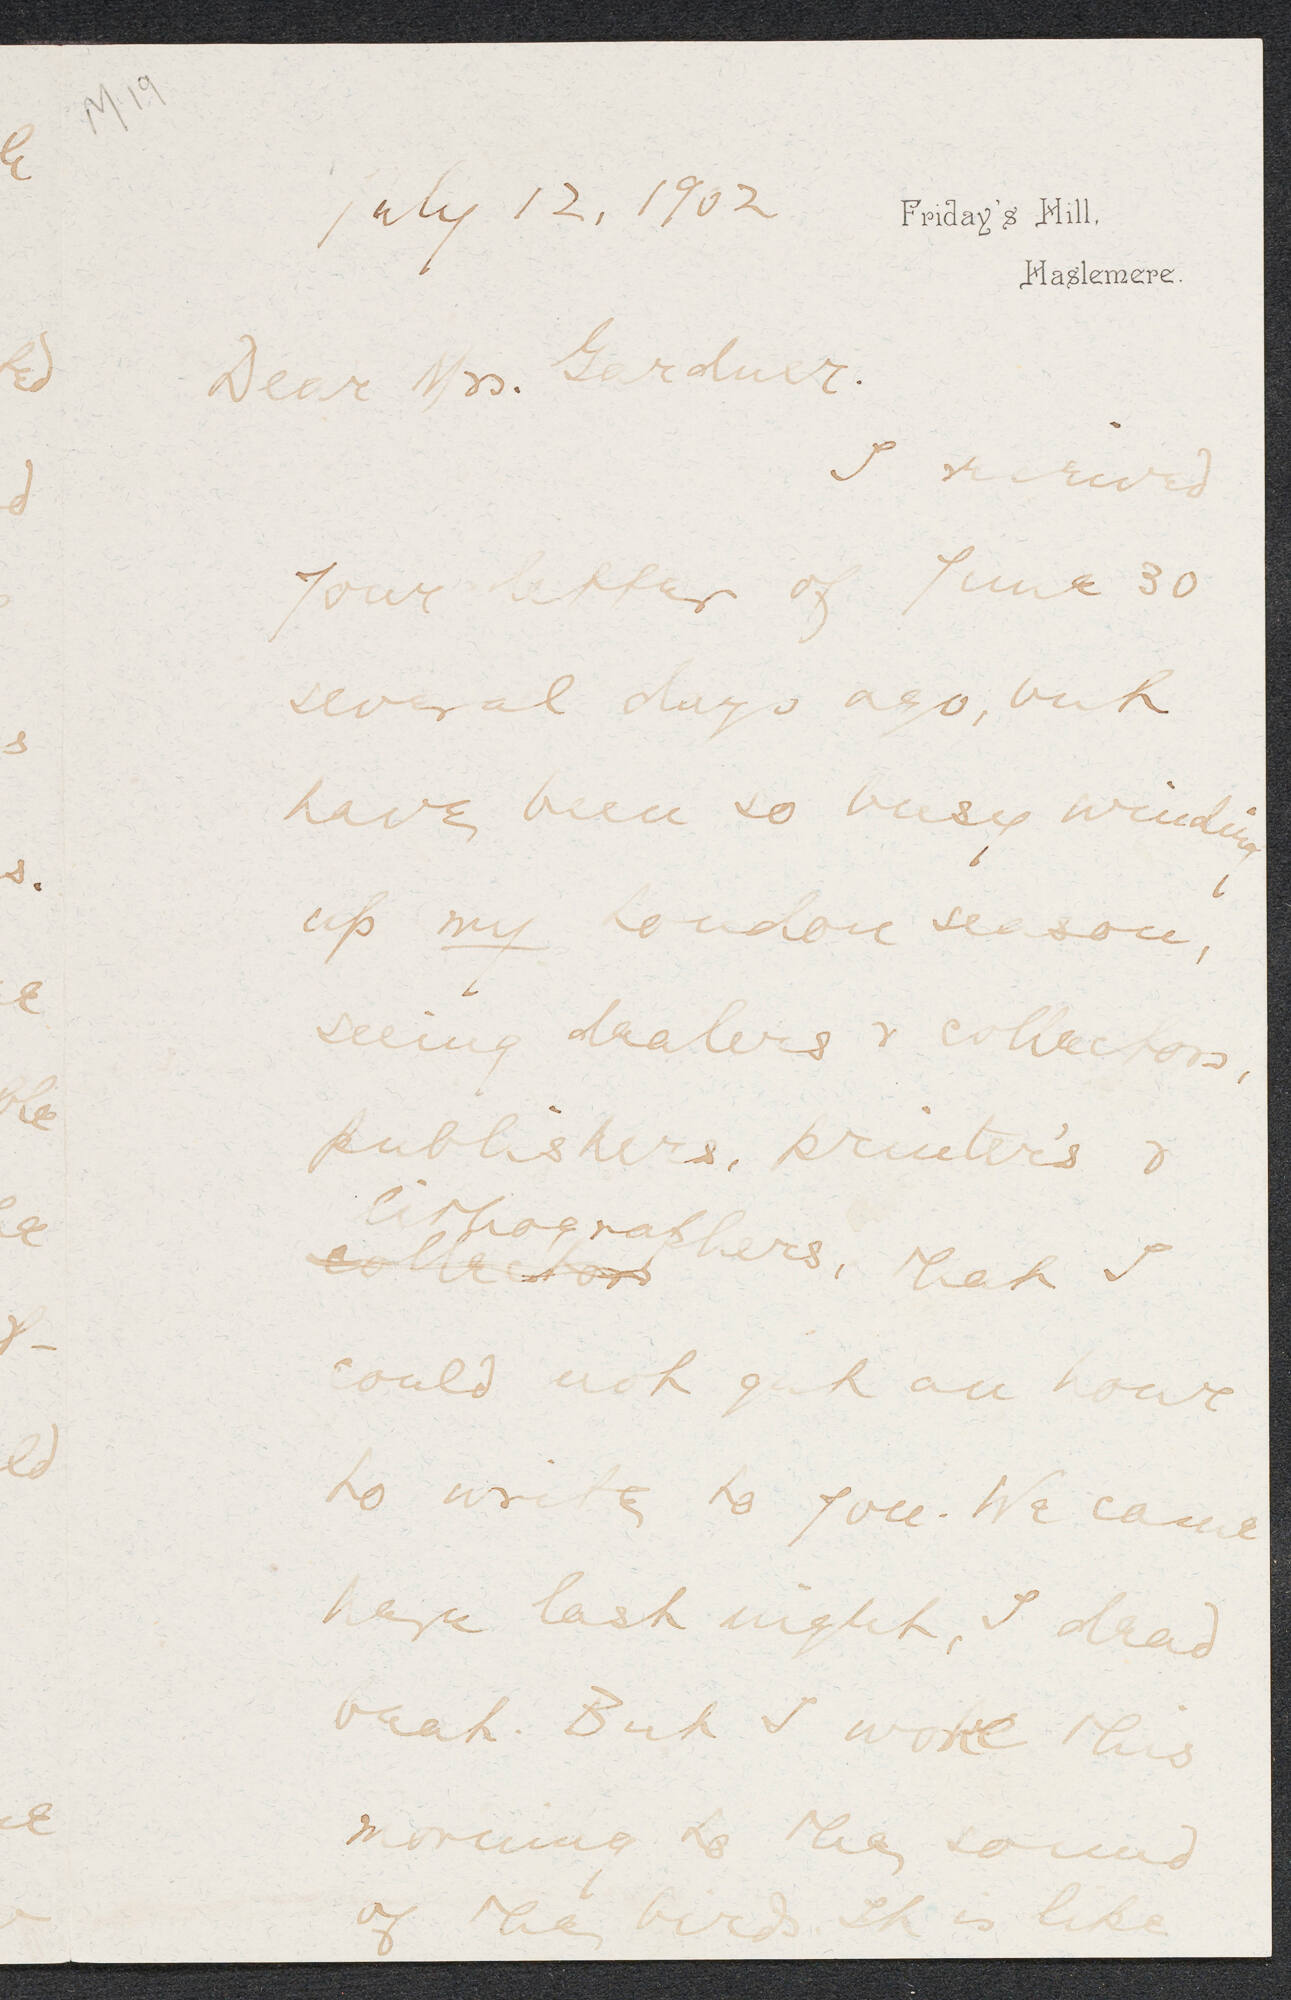 M 19
July 12, 1902
Friday's Hill,
Haslemere.
Dear Mrs. Gardner.
I received
your letter of June 30
several days ago, but
have been so busy winding
up my London season,
seeing dealers & collectors,
publishers, printer's &
lithographers,
collectors that I
could not get an hour
to write to you. We came
here last night, I dead
beat. But I woke this
morning to the sound
of the birds. It is like